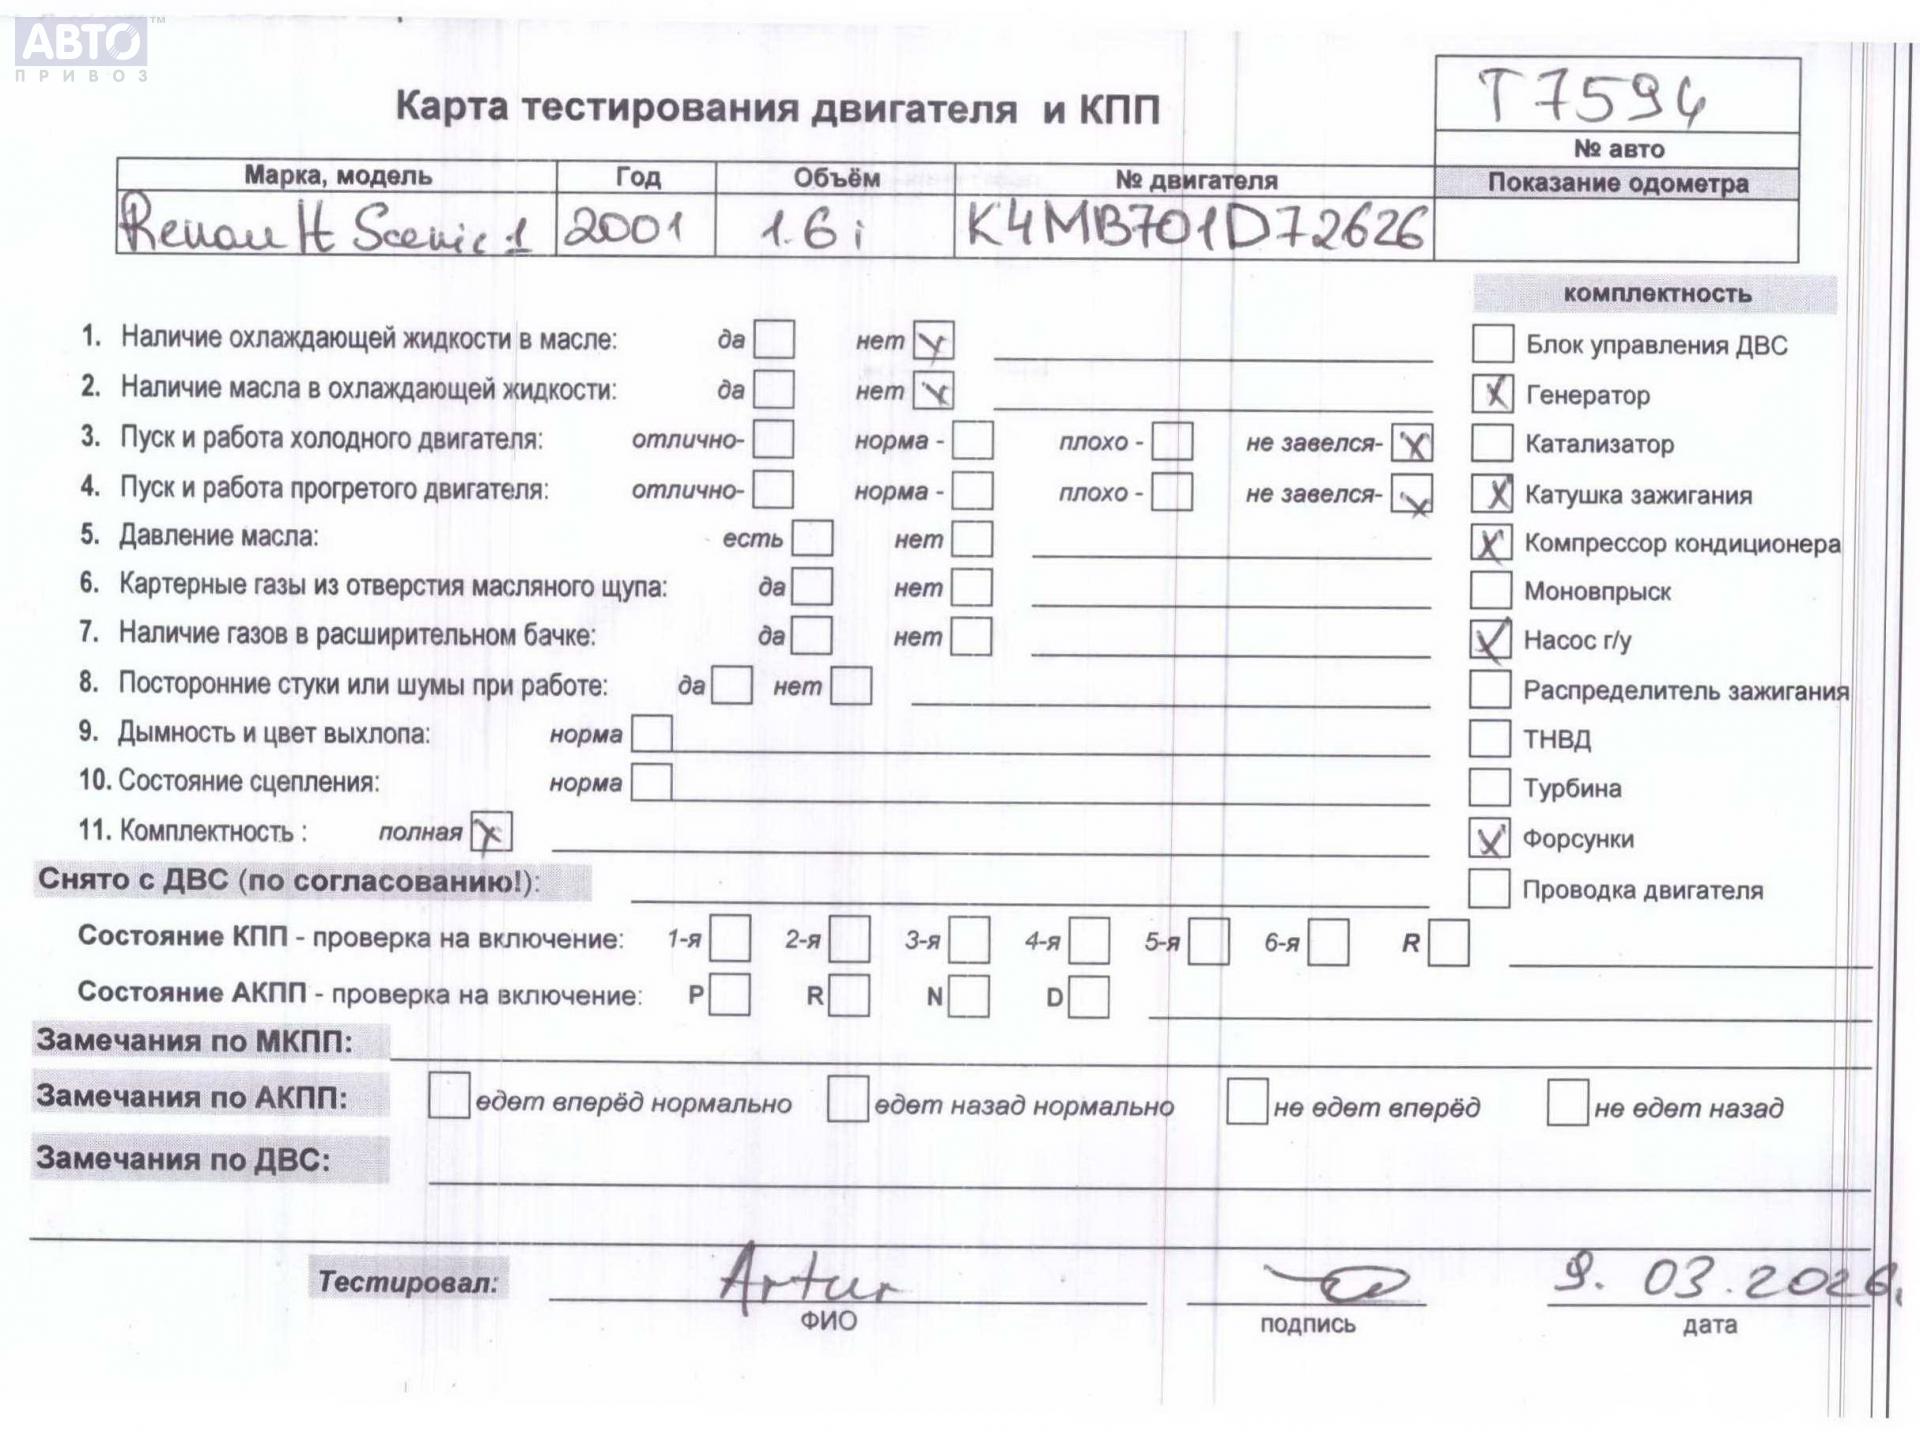 АВТО™
ПРИВОЗ
Карта тестирования двигателя и КПП
T7594
№ авто
Марка, модель Год Объём № двигателя Показание одометра
Renault Scenic 1 2001 1.6i K4MB701D72626
комплектность
1. Наличие охлаждающей жидкости в масле: да нет
Блок управления ДВС
2. Наличие масла в охлаждающей жидкости: да нет
Генератор
3. Пуск и работа холодного двигателя: отлично- норма - плохо - не завелся-
Катализатор
4. Пуск и работа прогретого двигателя: отлично- норма - плохо - не завелся-
Катушка зажигания
5. Давление масла: есть нет
Компрессор кондиционера
6. Картерные газы из отверстия масляного щупа: да нет
Моновпрыск
7. Наличие газов в расширительном бачке: да нет
Насос г/у
8. Посторонние стуки или шумы при работе: да нет
Распределитель зажигания
9. Дымность и цвет выхлопа: норма
ТНВД
10. Состояние сцепления: норма
Турбина
11. Комплектность : полная
Форсунки
Снято с ДВС (по согласованию!):
Проводка двигателя
Состояние КПП - проверка на включение: 1-я 2-я 3-я 4-я 5-я 6-я R
Состояние АКПП - проверка на включение: P R N D
Замечания по МКПП:
Замечания по АКПП: едет вперёд нормально едет назад нормально не едет вперёд не едет назад
Замечания по ДВС:
Тестировал: Artur 9.03.2026.
ФИО подпись дата